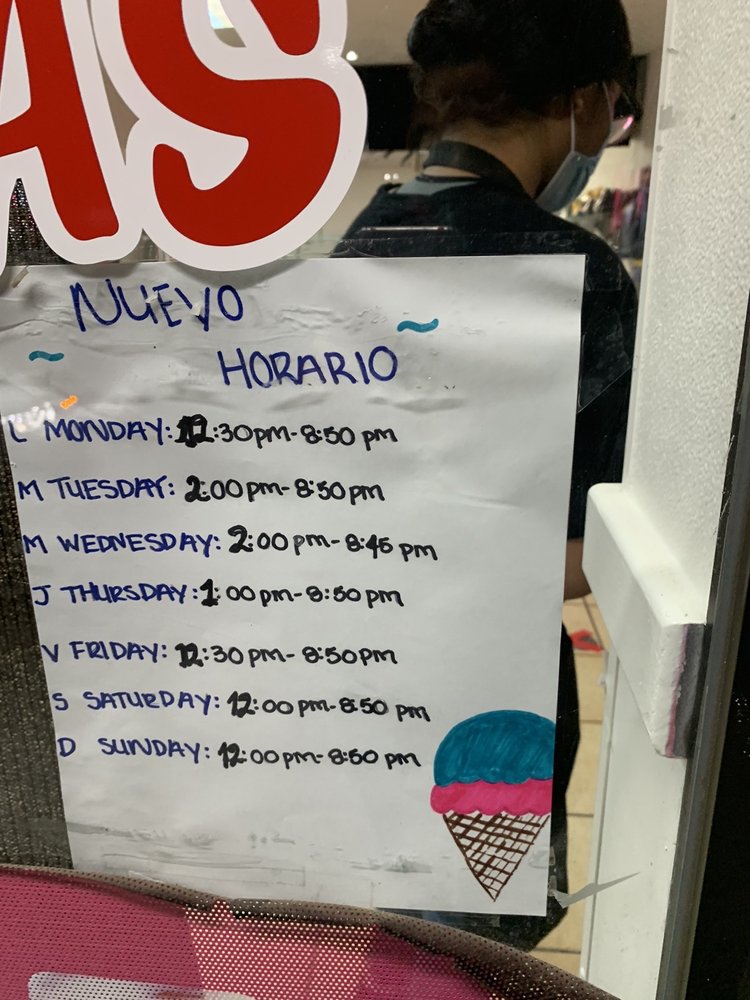 AS
NUEVO
HORARIO
L MONDAY: 12:30pm-8:50 pm
M TUESDAY: 2:00 pm-8:50 pm
M WEDNESDAY: 2:00 pm-8:45 pm
J THURSDAY: 1:00 pm-8:50 pm
V FRIDAY: 12:30 pm-8:50 pm
S SATURDAY: 12:00 pm-8:50 pm
D SUNDAY: 12:00 pm-8:50 pm